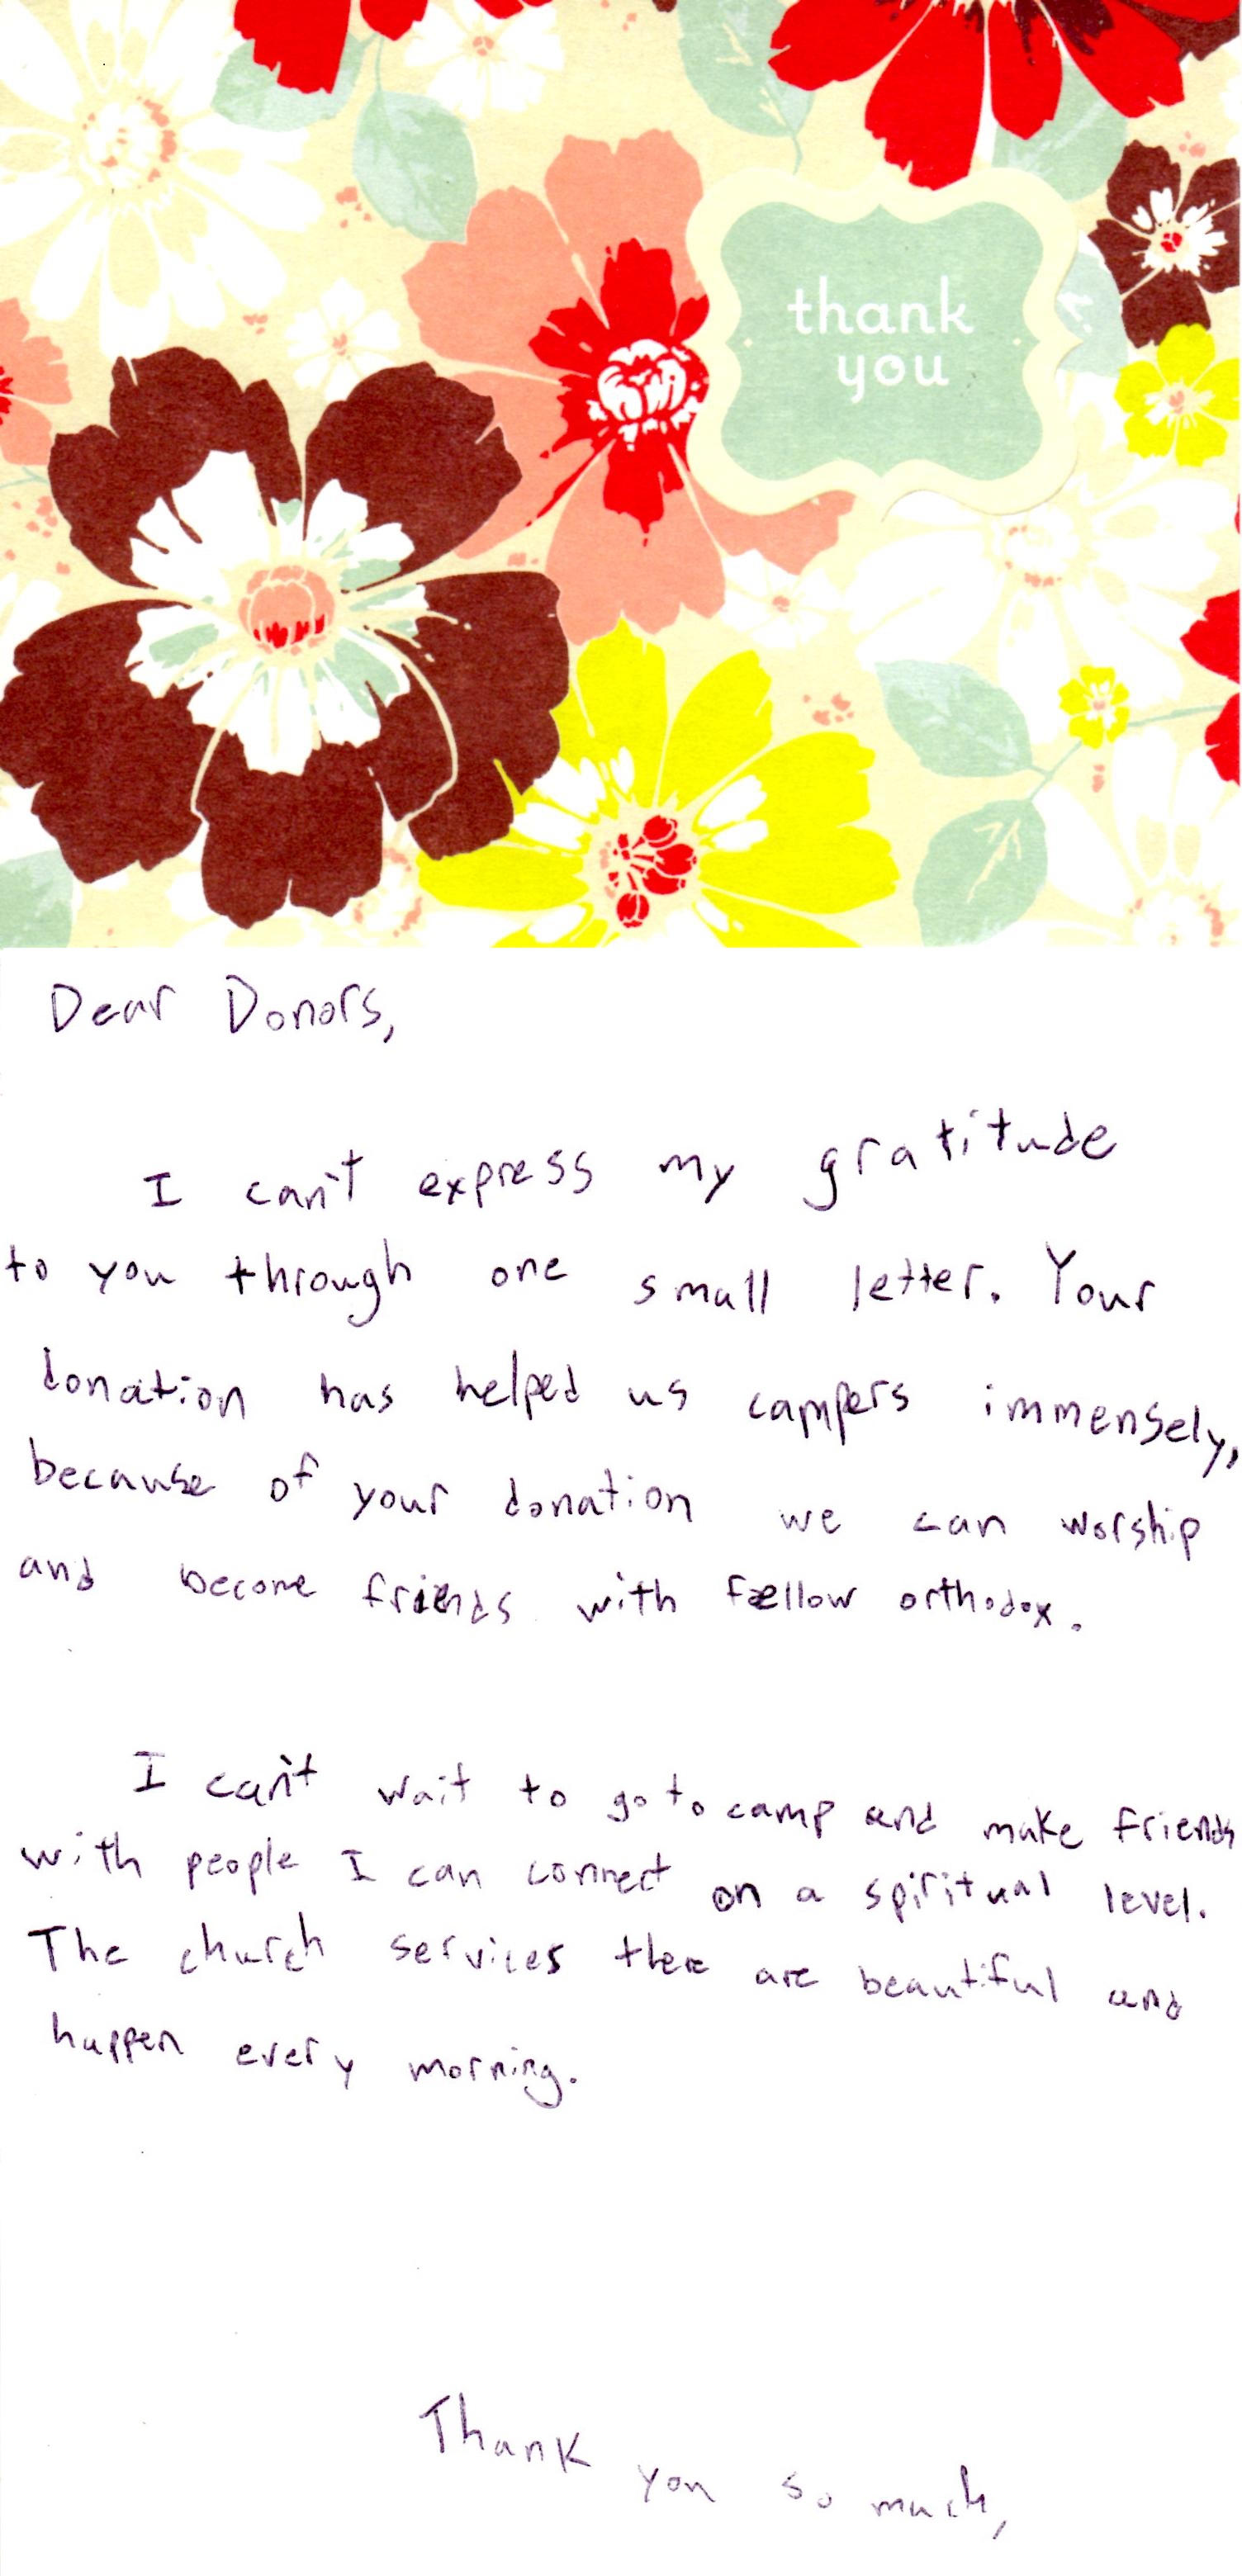 thank
you
Dear Donors,
I can't express my gratitude
to you through one small letter. Your
donation has helped us campers immensely,
because of your donation we can worship
and become friends with fellow orthodox.
I can't wait to go to camp and make friends
with people I can connect on a spiritual level.
The church services there are beautiful and
happen every morning.
Thank you so much,